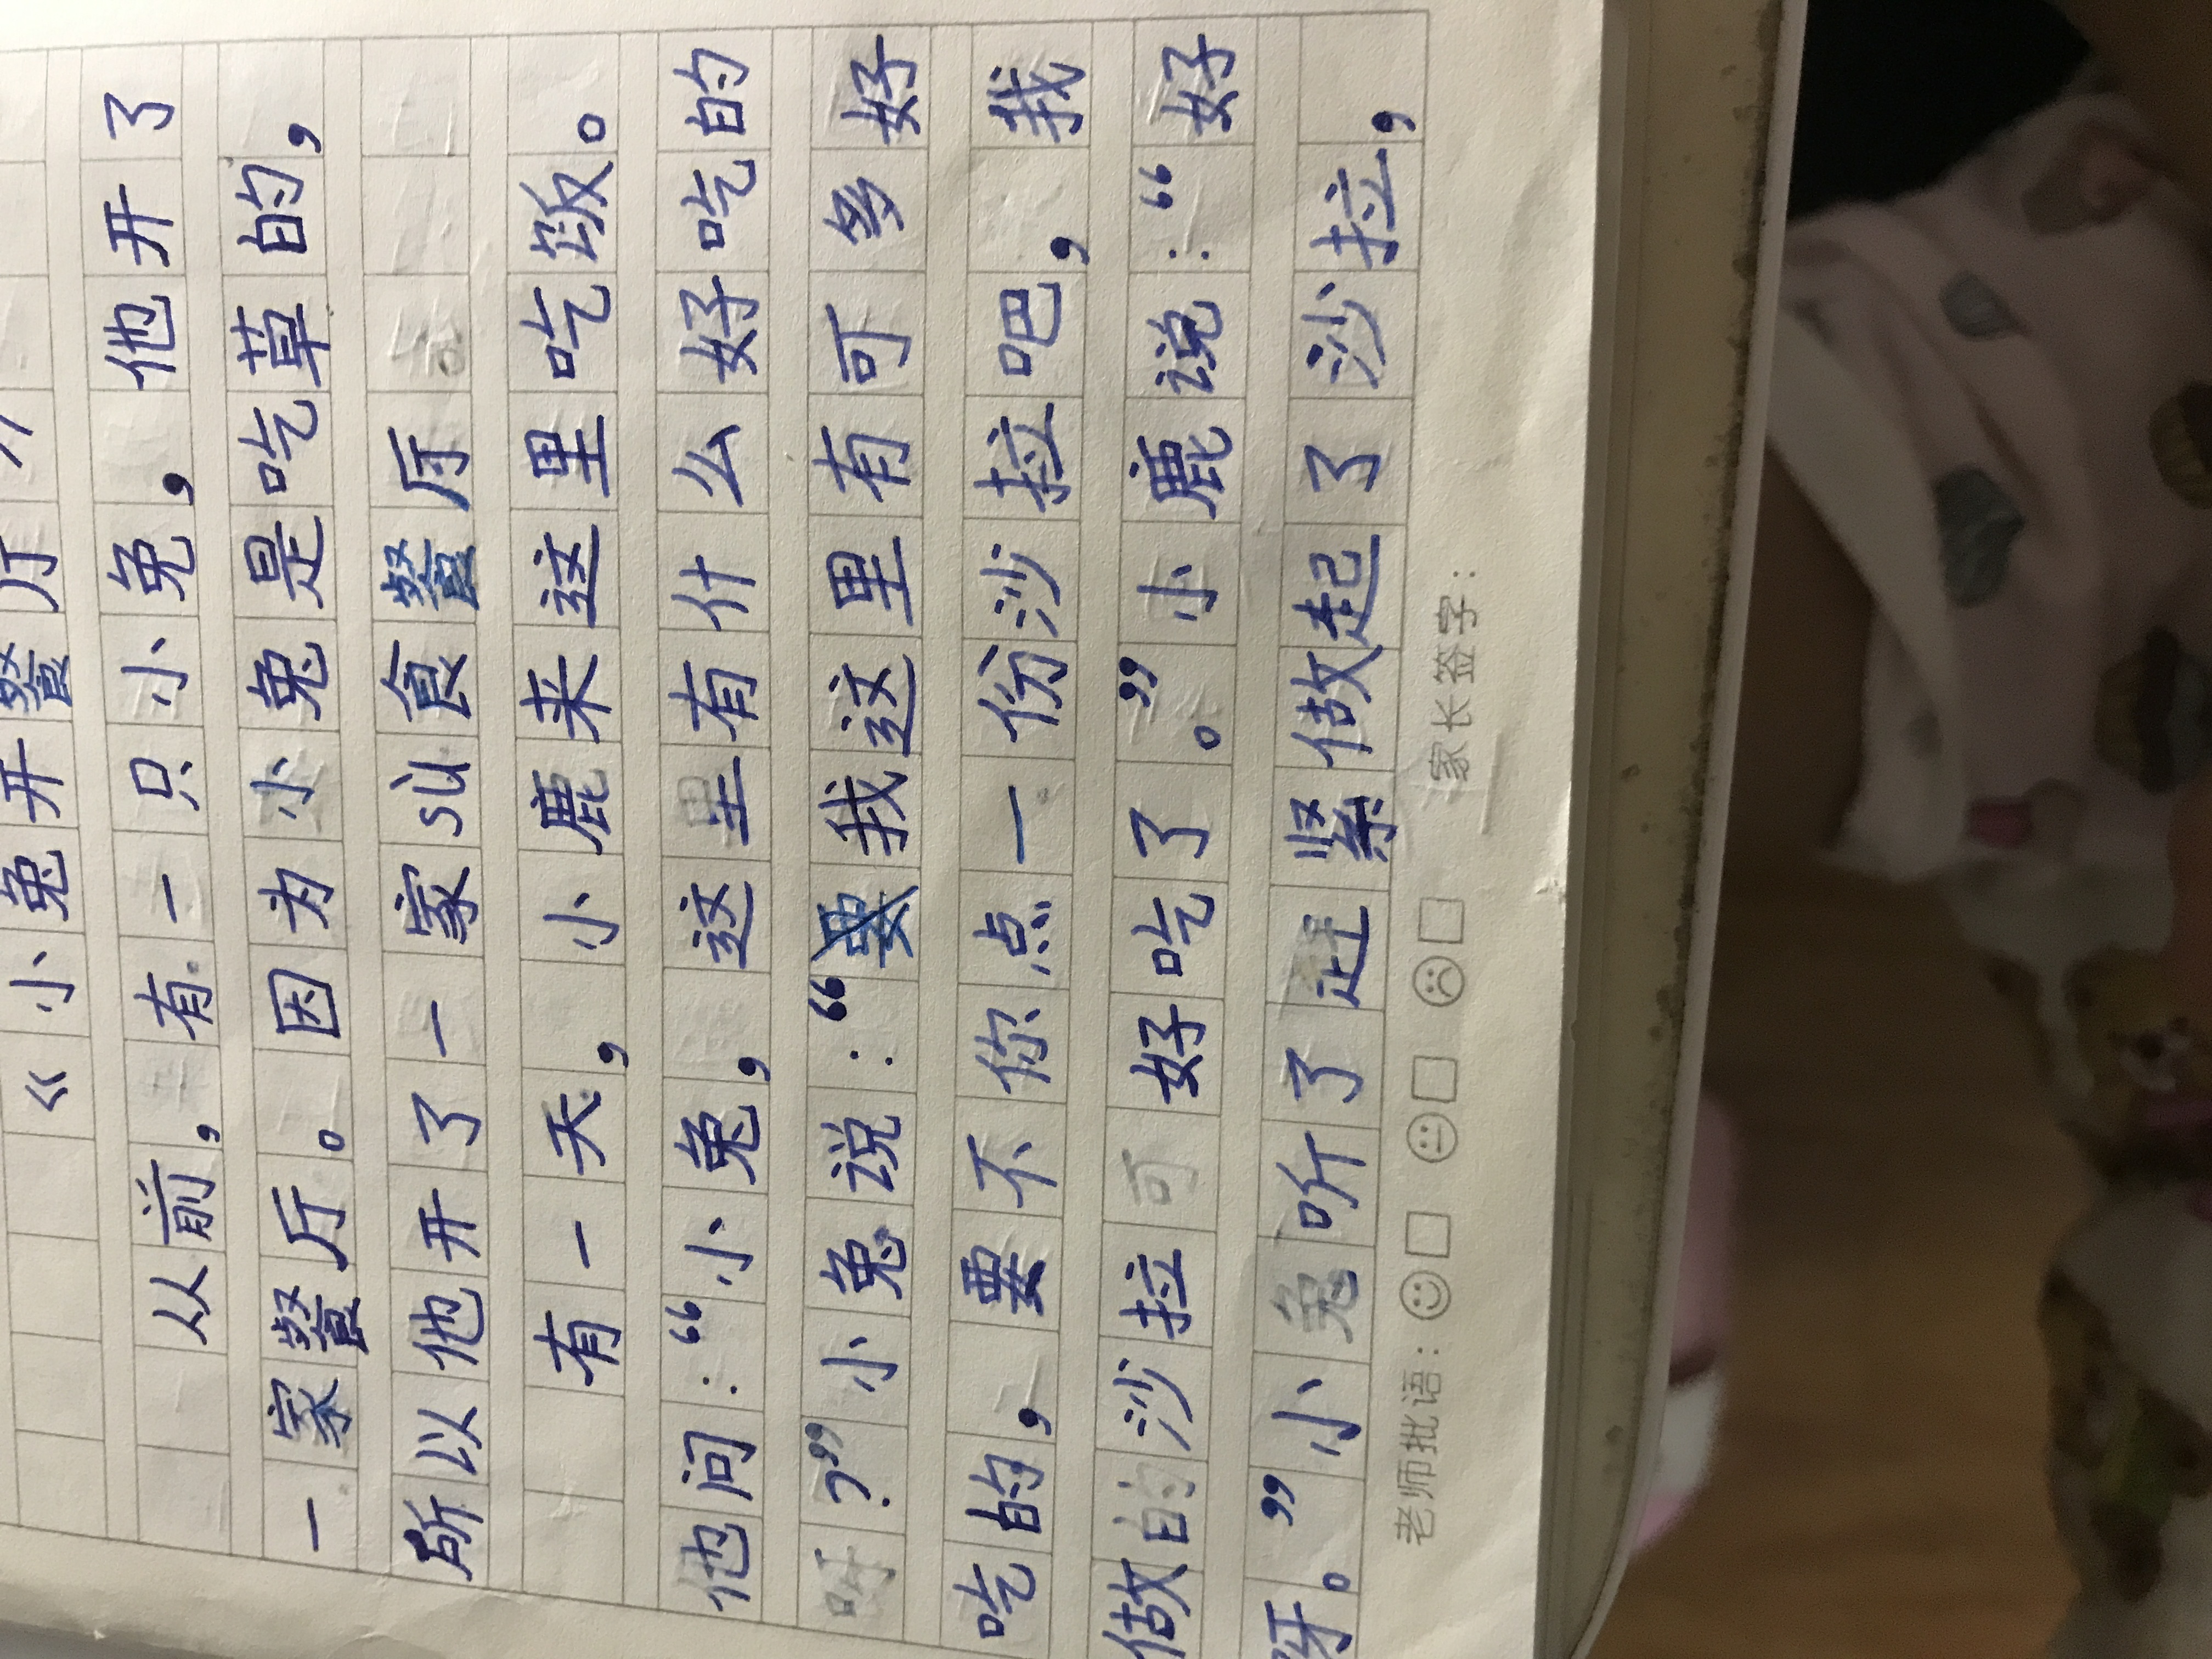 《小兔开餐厅》
从前，有一只小兔，他开了
一家餐厅。因为小兔是吃草的，
所以他开了一家sù食餐厅
有一天，小鹿来这里吃饭。
他问：“小兔，这里有什么好吃的
呀？”小兔说：“我这里有可多好
吃的，要不你点一份沙拉吧，我
做的沙拉可好吃了。”小鹿说：“好
呀。”小兔听了赶紧做起了沙拉，
老师批语：☺□ 😐□ ☹□ 家长签字：